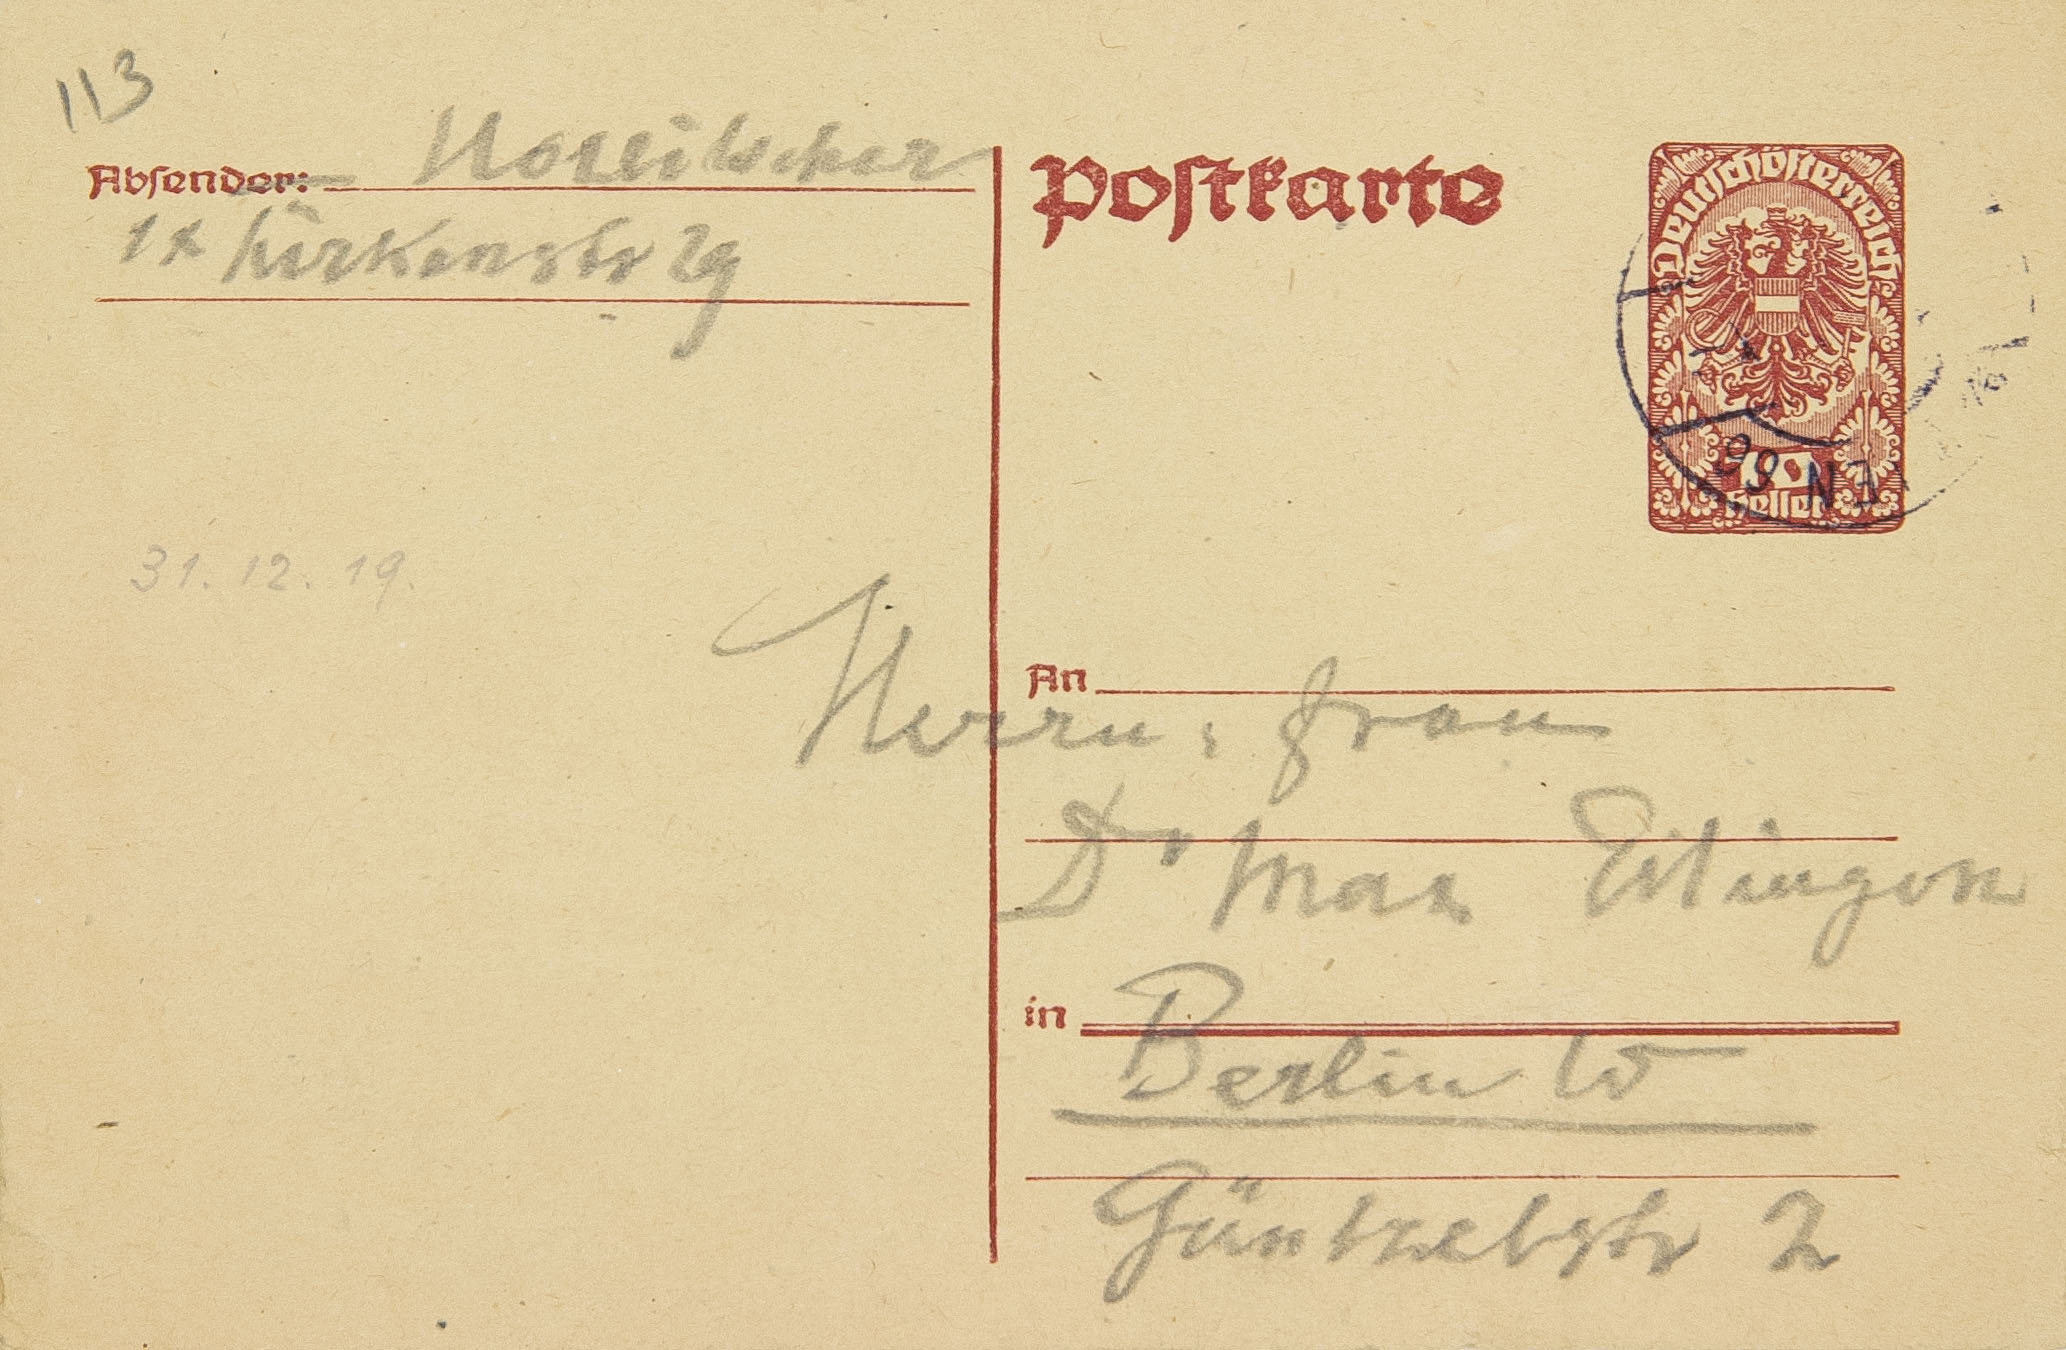 113
Absender: Hollitscher
IX Türkenstr 29
31. 12. 19.
Postkarte
Deutschösterreich
10
Heller
IEN 66
An
Herrn, Frau
Dr Max Eitingon
in
Berlin W
Güntzelstr 2